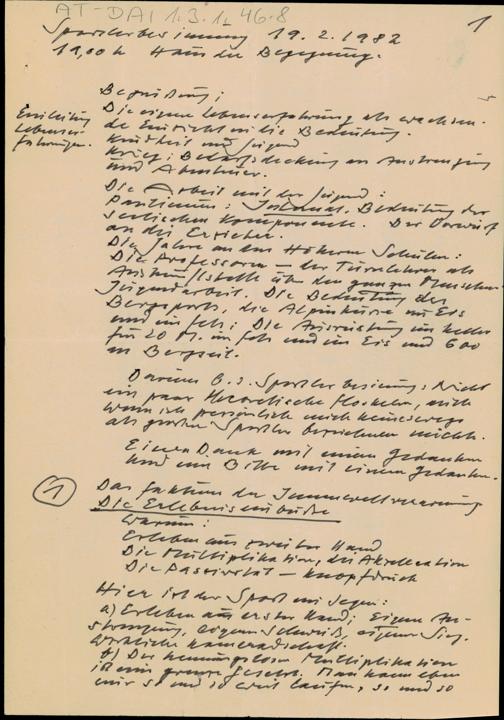 AT-DAI 1.3.1. 46.8
1
Sportlerbesinnung 19.2.1982
19,00 h Haus der Begegnung.
Begrüßung;
Einleitung
Lebenser-
fahrungen.
Die eigene Lebenserfahrung als wachsen-
de Einsicht in die Bedeutung.
Kindheit und Jugend
Krieg: Bedarfsdeckung an Anstrengung
und Abenteuer.
Die Arbeit mit der Jugend:
Bedeutung der
seelischen Komponente. Der Vorwurf
an die Erzieher.
Die Jahre an den Höheren Schulen:
Die Professoren – der Turnlehrer als
Auskunftsstelle über den ganzen Menschen
Jugendarbeit. Die Bedeutung des
Bergsports, die Alpinkurse in Eis
und im Fels; Die Ausrüstung im Keller
für 20 M. im Fels und im Eis und 600
m Bergseil.
Darum b.d. Sportlerbesinnung: Nicht
ein paar theoretische Floskeln, auch
wenn ich persönlich mich keineswegs
als großen Sportler bezeichnen möchte.
Einen Dank mit einem Gedanken
und eine Bitte mit einem Gedanken.
1
Das Faktum der Innenweltverarmung
Die Erlebniseinbuße
Warum:
Erleben aus zweiter Hand
Die Multiplikation, die Akzeleration
Die Passivität – Knopfdruck
Hier ist der Sport ein Segen:
a) Erleben aus erster Hand; Eigene An-
strengung, eigener Schweiß, eigener Sieg.
wirkliche Kameradschaft.
b) Der hemmungslosen Multiplikation
ist eine Grenze gesetzt. Man kann eben
nur so und so weit laufen, so und so